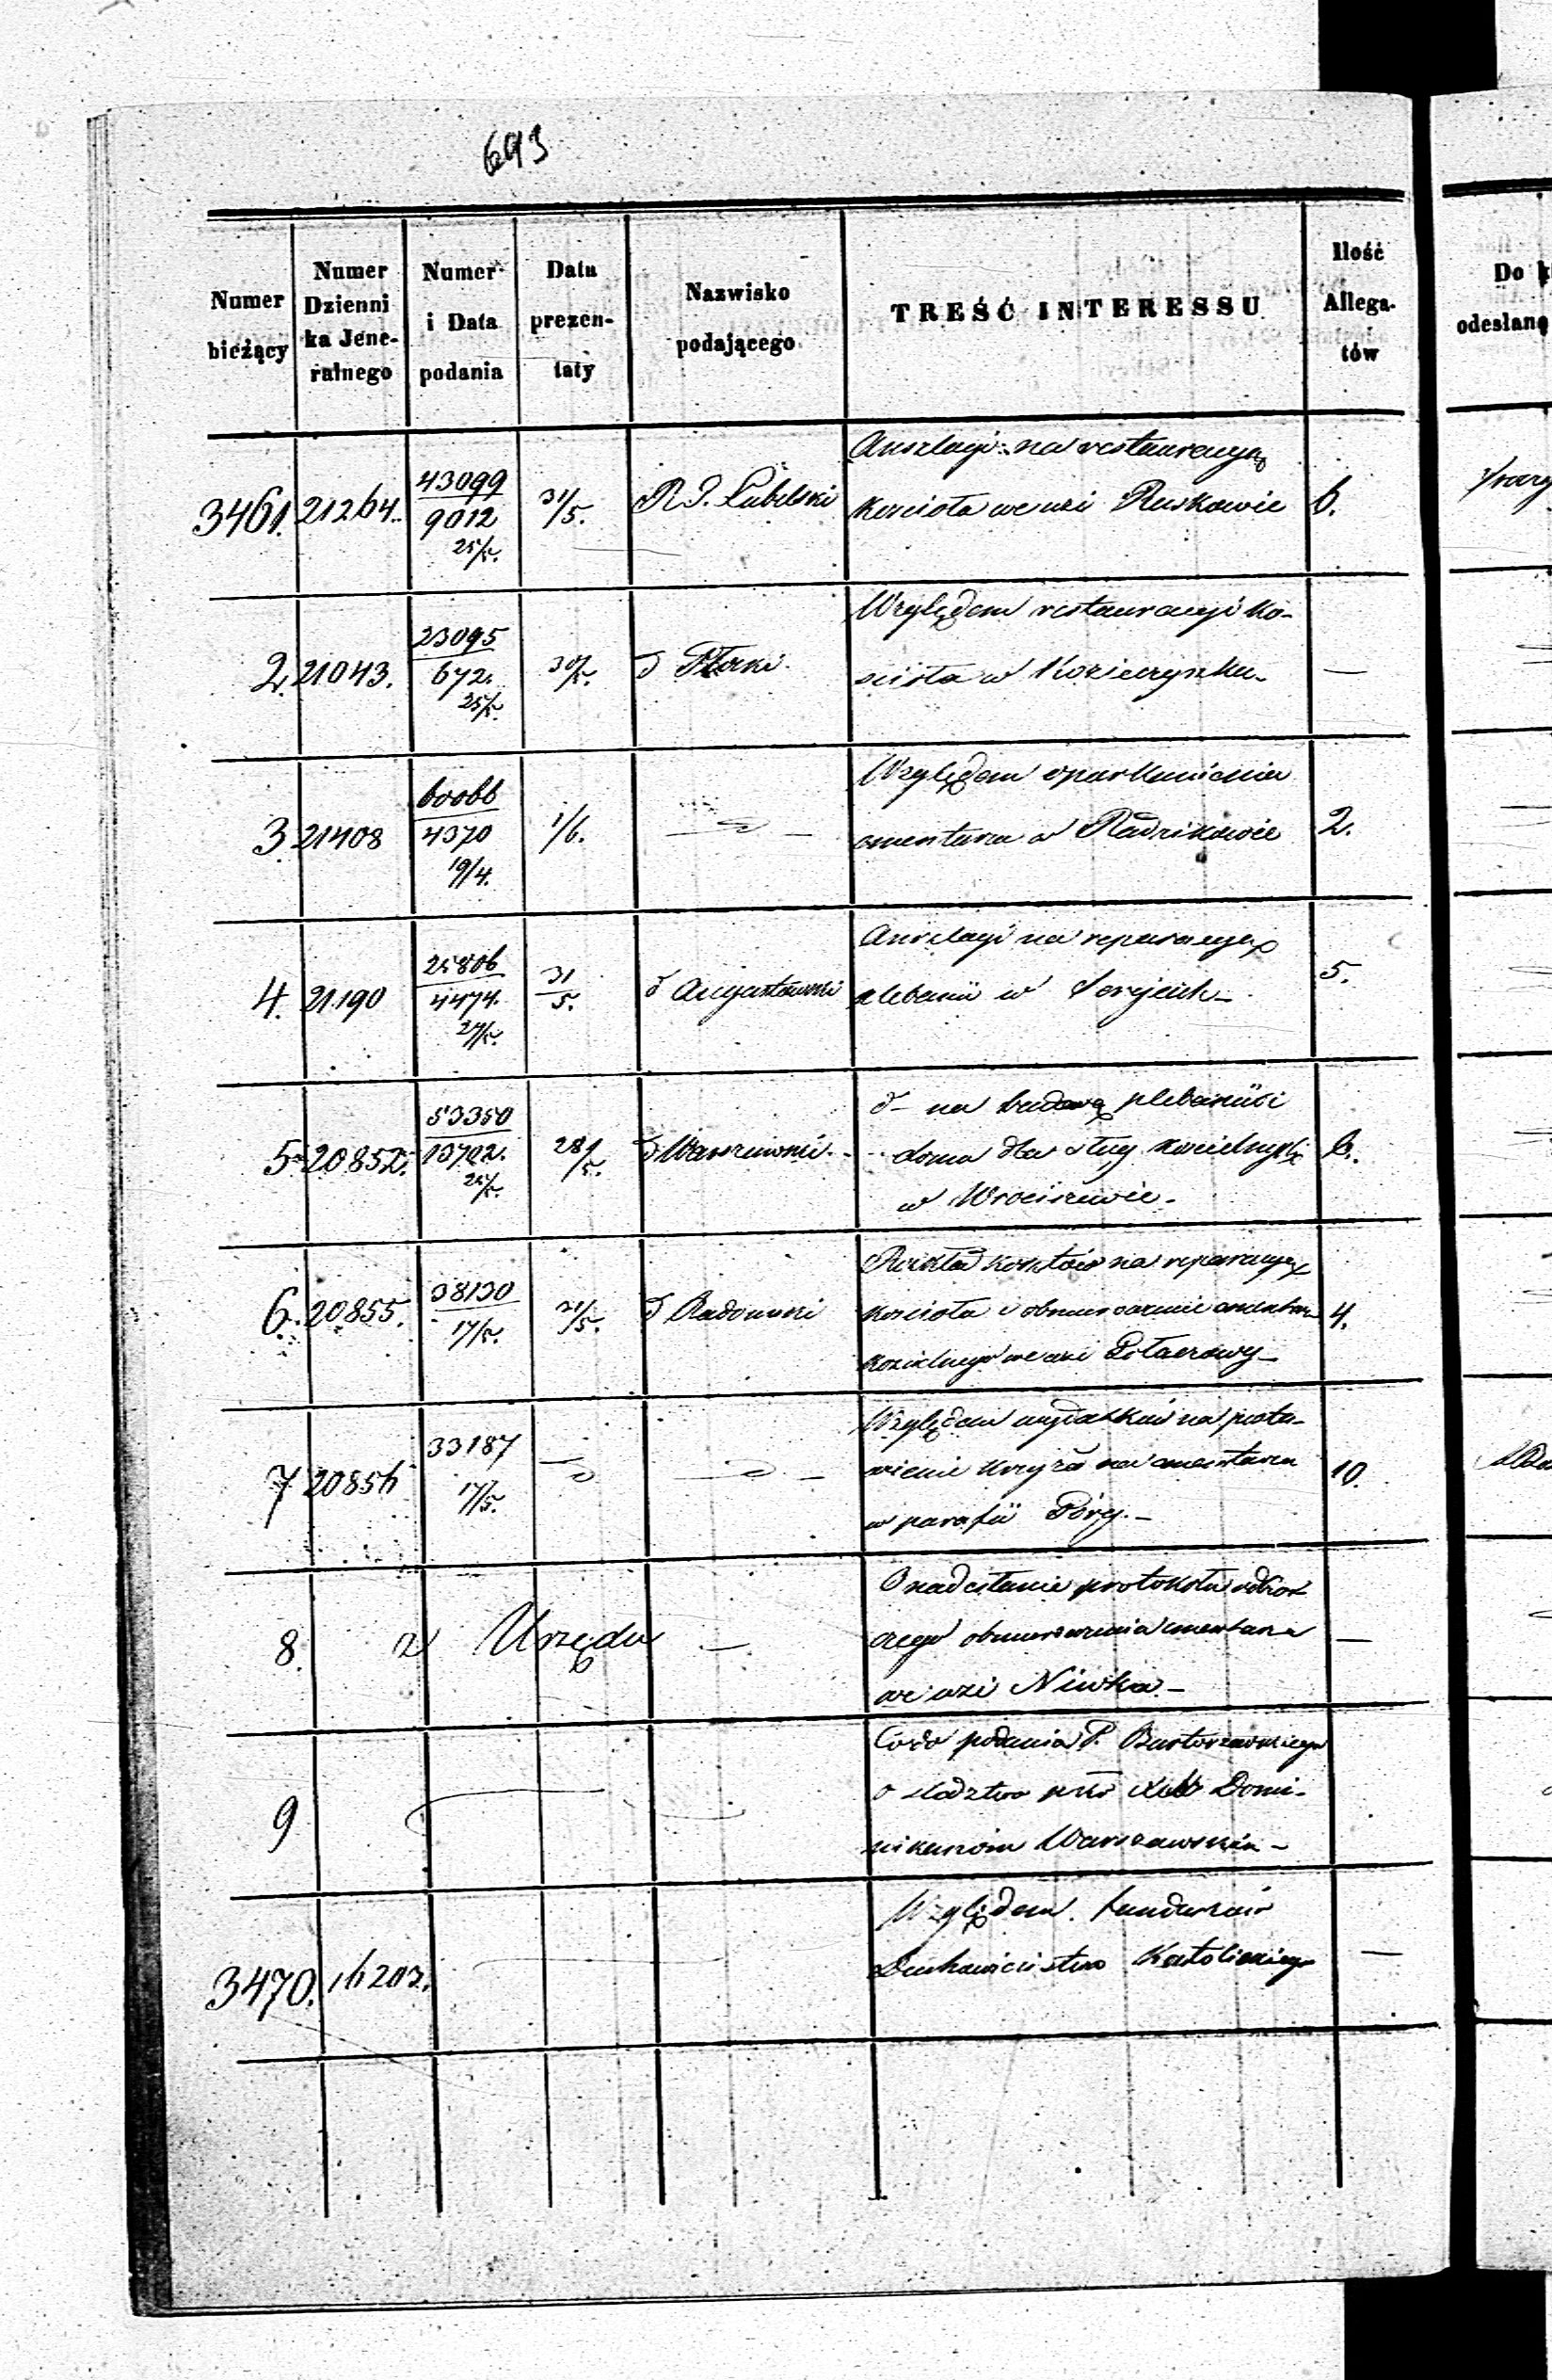 693
Numer bieżący
Numer Dzienni ka Jene- ralnego
Numer i Data podania
Data prezen- taty
Nazwisko podającego
TREŚĆ INTERESSU
Ilość Allega- tów
Do
odesłano
Anszlagi na restauracyą
3461. 21264. 43099 9012 25/5. 31/5. R. G. Lubelski kościoła we wsi Ruskowie 6.
Względem restauracyi ko-
2. 21043. 23095 672. 25/5. 30/5. d Płocki ścioła w Koziczynku —
Względem oparkanienia
3. 21408 60066 4370 19/4. 1/6. — d — cmentarza w Radzikowie 2.
Anszlagi na reparacyą
4. 21190 25806 4474. 27/5. 31/5. d Augustowski plebanii w Serejach — 5.
d — na budowę plebanii i
5 20852. 53350 13702. 25/5. 28/5. d Warszawski. domu dla sług kościelnych 6.
w Wrociszewie.
Rozkład kosztów na reparacyą
6. 20855. 38130 17/5. 31/5. d Radomski kościoła i obmurowanie cmentarza 4.
kościelnego we wsi
Względem wydatków na posta-
7 20856 33187 17/5. — d — d — wienie krzyża na cmentarzu 10.
w parafii Góry. —
O nadesłanie protokołu odbior
8. z Urzędu — czego obmurowania cmentarza —
we wsi Niwka —
Co do podania P.
9 o śledztwo Domi-
nikanom Warszawskim —
Względem funduszów
3470. 16202. Duchowieństwa Katolickiego —